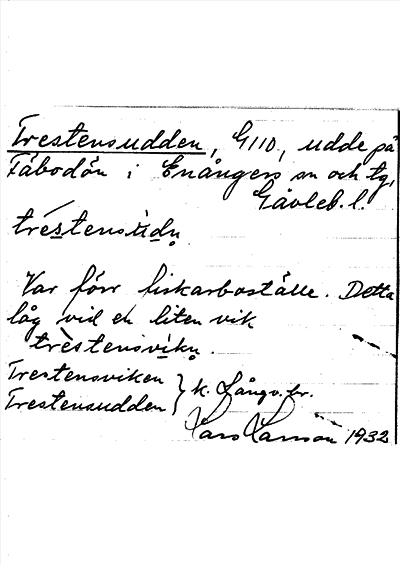 Trestensudden, G110, udde på
Fäbodön i Enångers sn och tg,
Gävleb. l.
tréstensùdṇ
Var förr fiskarboställe. Detta
låg vid en liten vik
trèstensvikṇ.
Trestensviken
Trestensudden } k. Långv. br.
Lars Larsson 1932